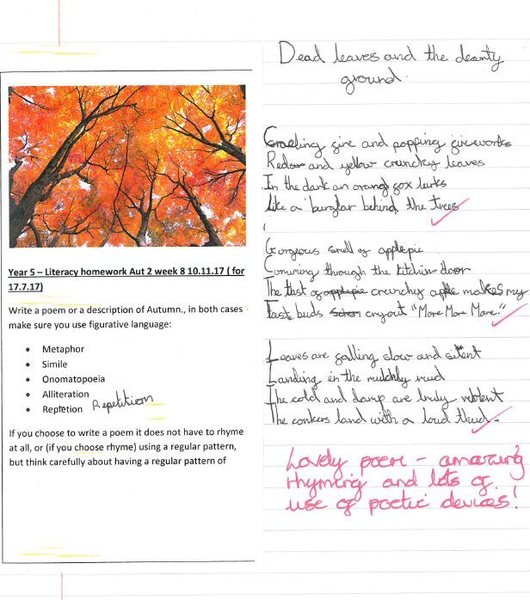 Year 5 – Literacy homework Aut 2 week 8 10.11.17 ( for
17.7.17)
Write a poem or a description of Autumn., in both cases
make sure you use figurative language:
• Metaphor
• Simile
• Onomatopoeia
• Alliteration
• Repfetion Repetition
If you choose to write a poem it does not have to rhyme
at all, or (if you choose rhyme) using a regular pattern,
but think carefully about having a regular pattern of
Dead leaves and the
ground.
fire and popping fireworks
and yellow crunchy leaves
In the dark an orang fox lurks
Like a burglar behind the trees
Gorgeous smell of applepie
through the kitchin door
The tast of crunchy apple makes my
taste buds cry out "More More More"
Leaves are falling slow and silent
Landing in the mud
The cold and damp are
The conkers land with a loud thud
Lovely poem - amazing
rhyming and lots of
use of poetic devices!